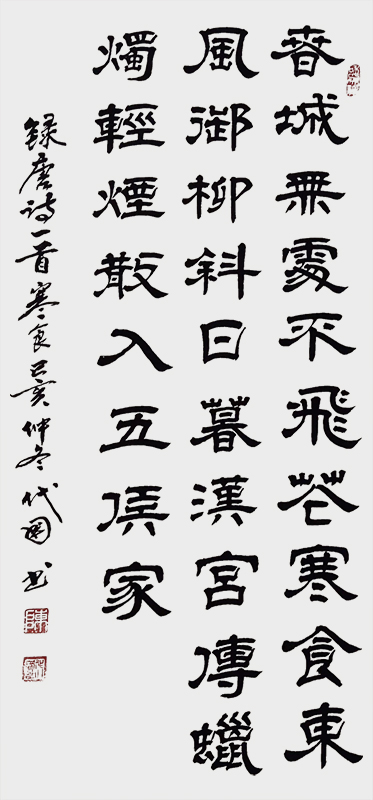 春城無處不飛花寒食東
風御柳斜日暮漢宮傳蠟
燭輕煙散入五侯家
録唐诗一首寒食己亥仲冬代国书